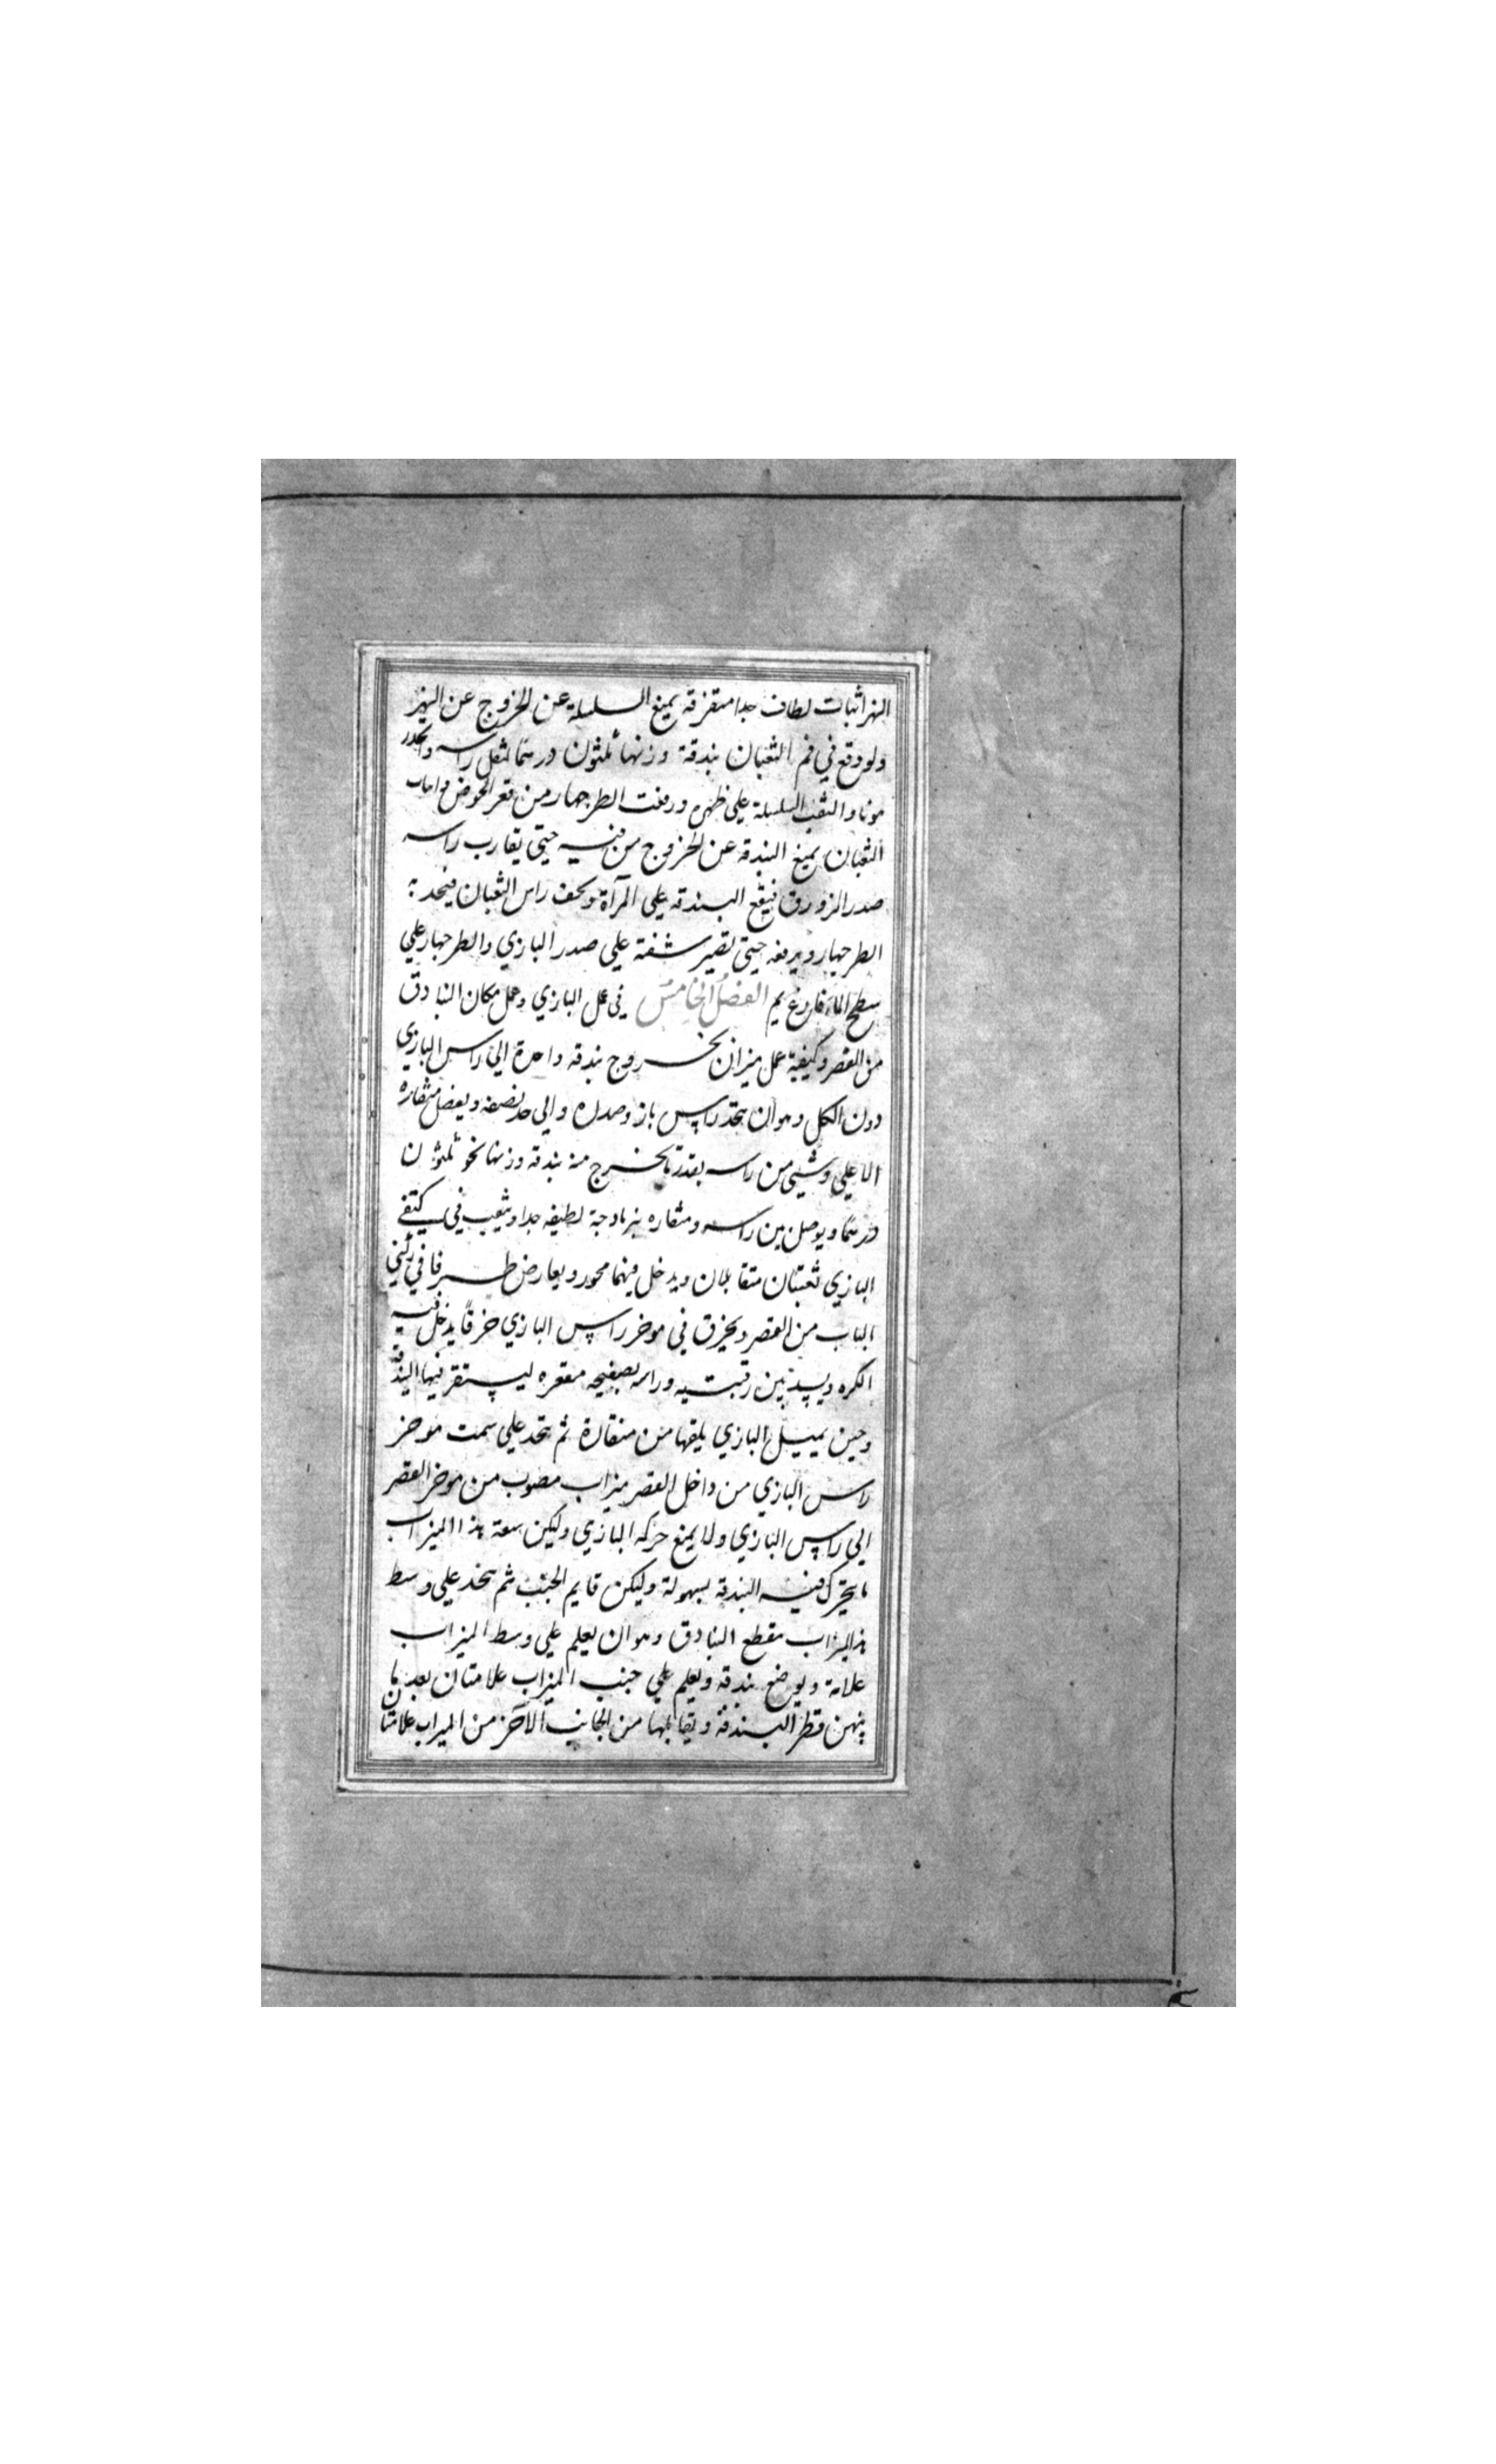 النهر اثبات لطاف جدا متفرقة يمنع السلسلة عن الخروج عن النهر
ولو وقع في فم الثعبان بندقة وزنها ثلثون درهما لثقل راسه وانحدر
والثقب السلسلة علي ظهره ورفعت الطرجهار من قعر الحوض
الثعبان يمنع البندقه عن الخروج من فيه حتي يقارب راسه
صدر الزورق فيقع البندقه علي المرآة ويخف راس الثعبان فيجد به
الطرجهار ويرفعه حتي تصير شفته علي صدر البازي والطرجهار علي
سطح الماء فارغ يم الفصل الخامس في عمل البازي وعمل مكان البنادق
من القصر وكيفية عمل ميزان يخروج بندقه واحدة الي راس البازي
دون الكل وهو ان يتخذ راس باز وصدره والي حد نصفه ويفصل منقاره
الاعلي وشيئ من راسه بقدر ما يخرج منه بندقه وزنها نحو ثلثون
درهما ويوصل بين راسه ومنقاره بنرمادجة لطيفه جدا ويثقب في كتفي
البازي ثقبتان متقابلان ويدخل فيهما محور ويعارض طرفا في ركني
الباب من القصر ويخرق في موخر راس البازي خرقا يدخل فيه
الكره ويسد بين رقبتيه وراسه بصفيحه مقعره ليستقر فيها البندقة
وحين يميل البازي يلقها من منقاره ثم يتخذ علي سمت موخر
راس البازي من داخل القصر ميزاب مصوب من موخر القصر
الي راس البازي ولا يمنع حركه البازي وليكن سعة هذا الميزاب
ما يتحرك فيه البندقة بسهولة وليكن قايم الجنب ثم يتخذ علي وسط
هذا الميزاب مقطع البنادق وهو ان يعلم علي وسط الميزاب
علامة ويوضع بندقه ويعلم علي جنب الميزاب علامتان بعد ما
بينهن قطر البندقة ويقابلها من الجانب الآخر من الميزاب علامتان